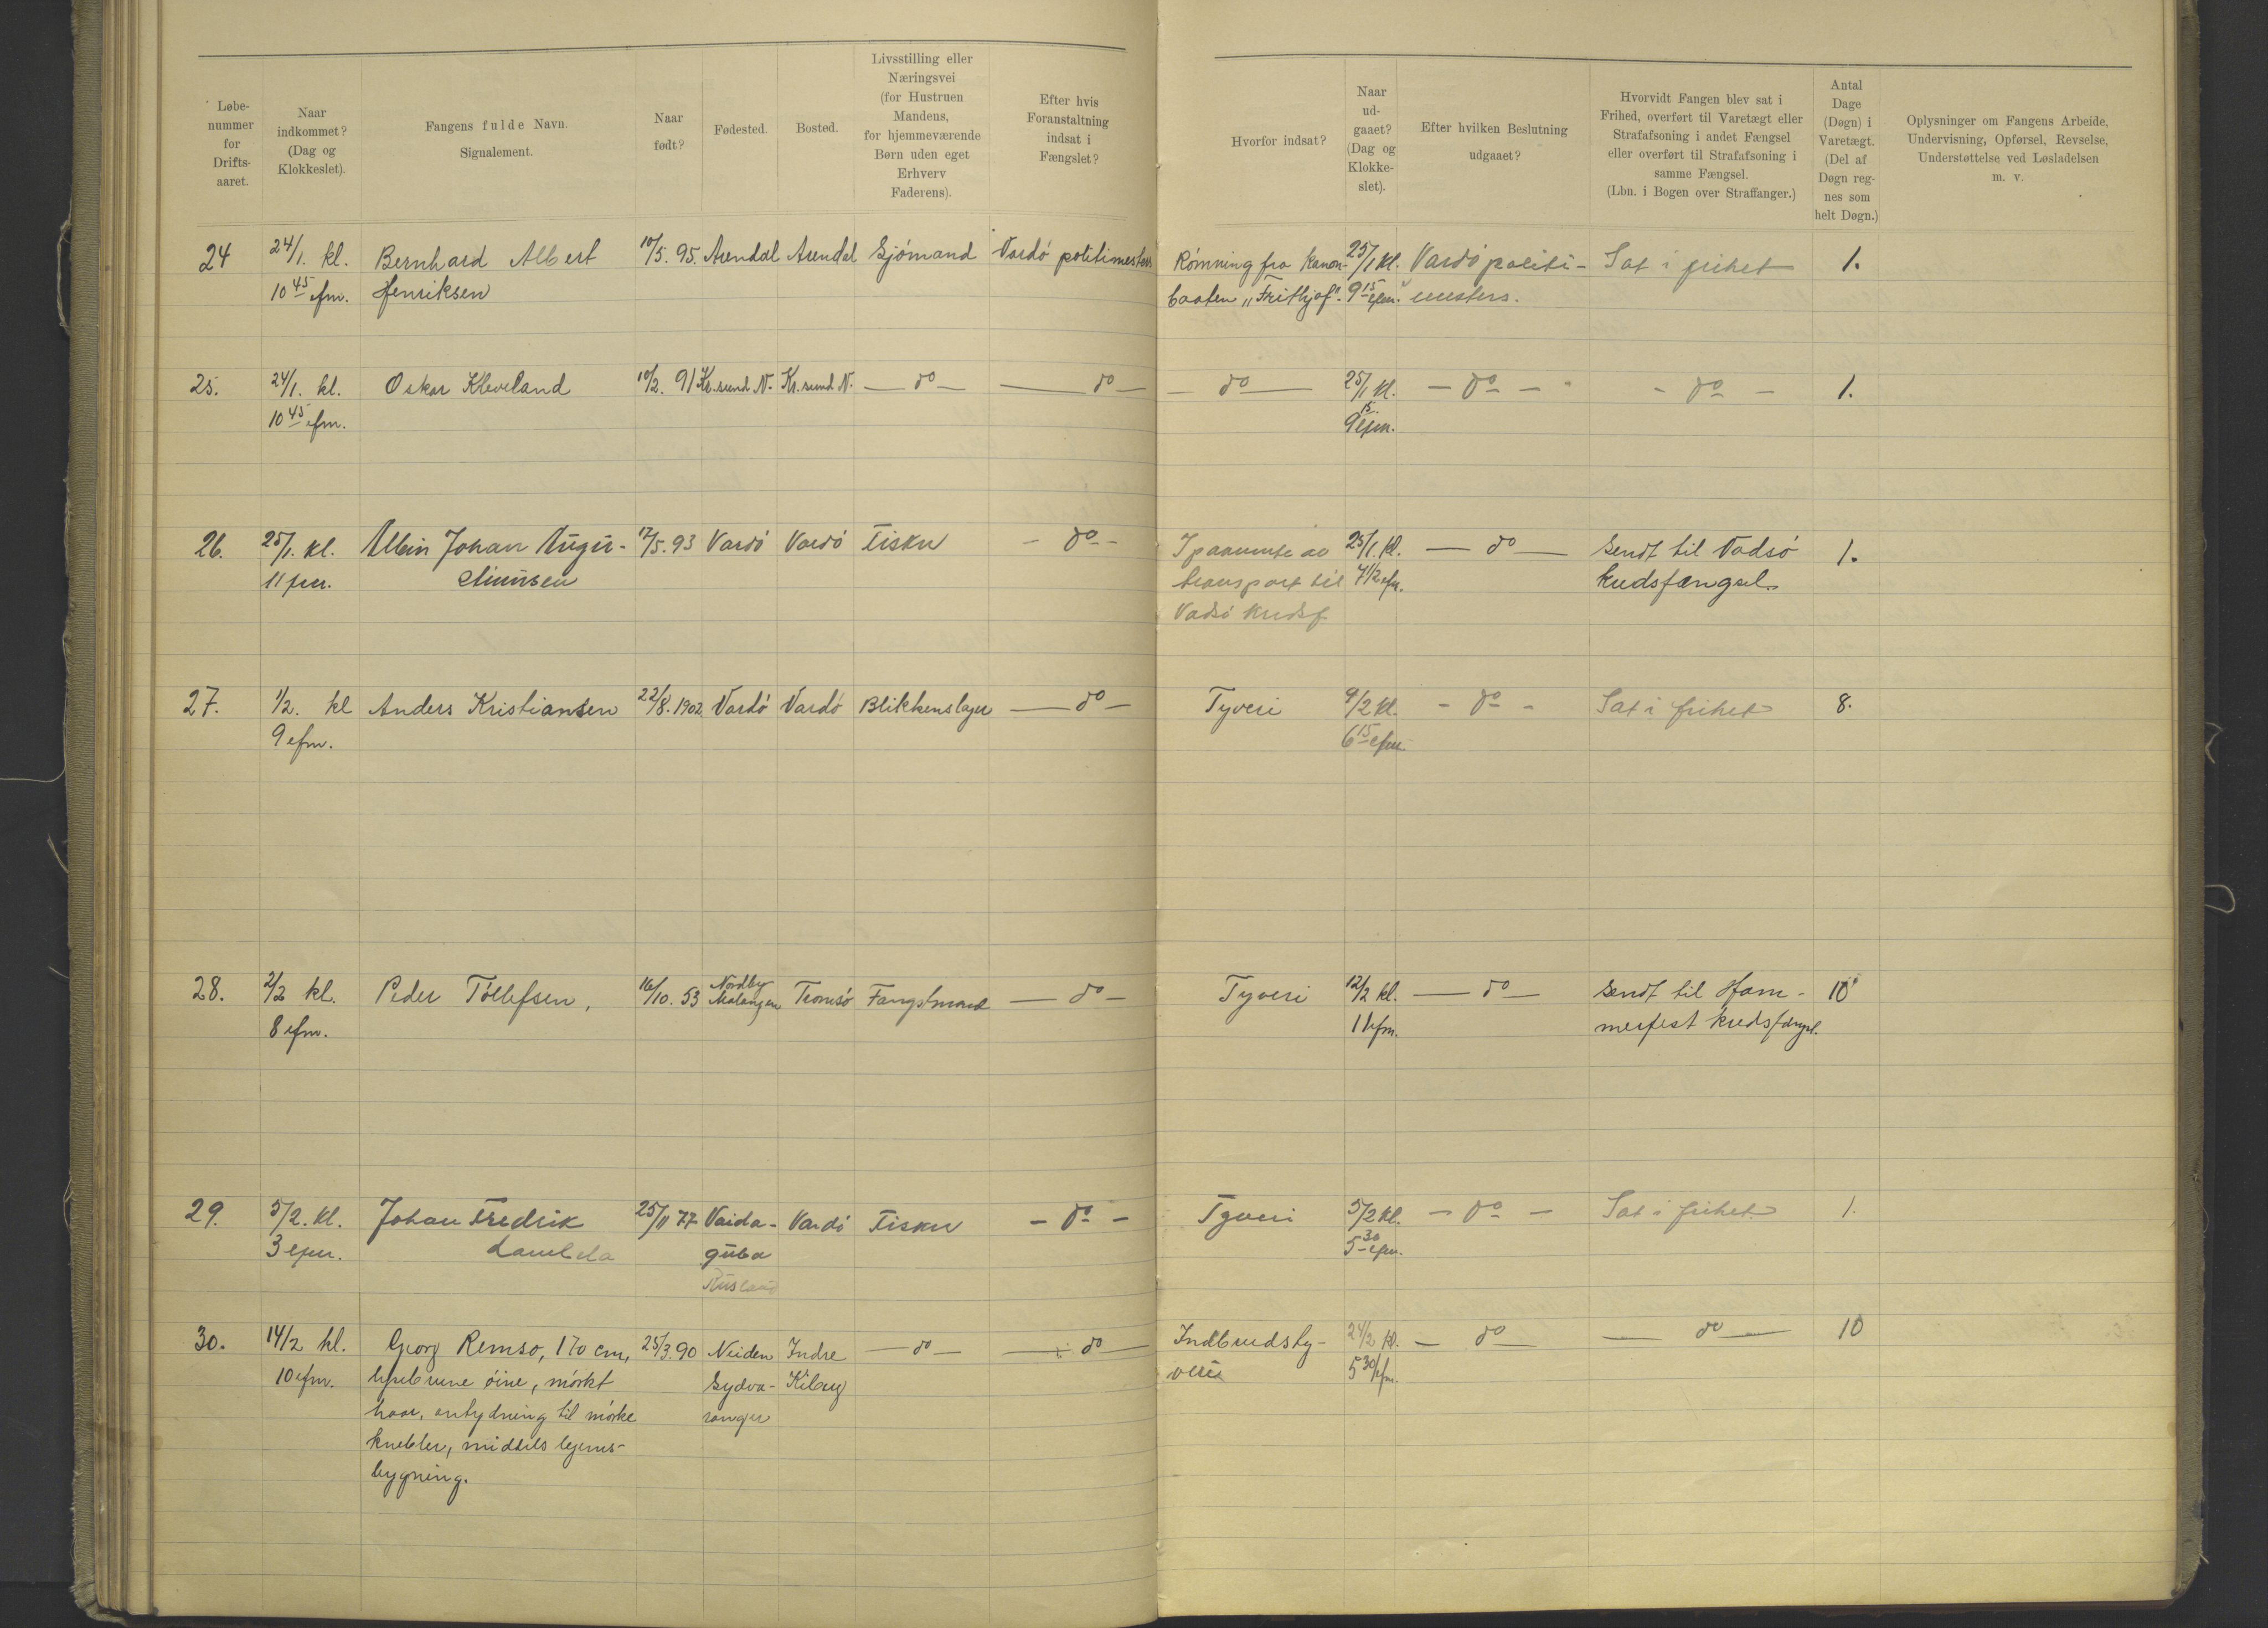 Løbe-
nummer
for
Drifts-
aaret.
Naar
indkommet?
(Dag og
Klokkeslet).
Fangens fulde Navn.
Signalement.
Naar
født?
Fødested.
Bosted.
Livsstilling eller
Næringsvei
(for Hustruen
Mandens,
for hjemmeværende
Børn uden eget
Erhverv
Faderens).
Efter hvis
Foranstaltning
indsat i
Fængslet?
Hvorfor indsat?
Naar
ud-
gaaet?
(Dag og
Klokke-
slet).
Efter hvilken Beslutning
udgaaet?
Hvorvidt Fangen blev sat i
Frihed, overført til Varetægt eller
Strafafsoning i andet Fængsel
eller overført til Strafafsoning i
samme Fængsel.
(Lbn. i Bogen over Straffanger.)
Antal
Dage
(Døgn) i
Varetægt.
(Del af
Døgn reg-
nes som
helt Døgn.)
Oplysninger om Fangens Arbeide,
Undervisning, Opførsel, Revselse,
Understøttelse ved Løsladelsen
m. v.
24 24/1. kl. Bernhard Albert 10/5. 95. Arendal Arendal Sjömand Vardö politimesters Rømning fra kanon- 25/1 kl. Vardö politi- Sat i frihet 1.
10 45 efm. Henriksen baaten „Frithjof". 9 15 efm. mesters.
25. 24/1. kl. Oskar Kleveland 10/2. 91 Kr.sund N. Kr.sund N. — do — — do — — do — 25/1 kl. — do — — do — 1.
10 45 efm. 9 15 efm.
26. 25/1. kl. Johan Augu- 17/5. 93 Vardö Vardö Fisker — do — I paavente av 25/1. kl. — do — Sendt til Vadsö 1.
11 fm. transport til 7 1/2 efm. kredsfængsel.
Vadsö kredsf.
27. 1/2. kl Anders Kristiansen 22/8. 1902 Vardö Vardö Blikkenslager — do — Tyveri 9/2 kl. — do — Sat i frihet 8.
9 efm. 6 15 efm.
28. 2/2 kl. Peder Töllefsen, 16/10. 53 Nordby Malangen Tromsö Fangstmand — do — Tyveri 12/2 kl. — do — Sendt til Ham- 10
8 efm. 11 efm. merfest kredsfængsel.
29. 5/2. kl. Johan Fredrik 25/11 77 Vaida- Vardö Fisker — do — Tyveri 5/2 kl. — do — Sat i frihet 1.
3 efm. guba 5 30 efm.
Rusland
30. 14/2 kl. Georg Remso, 170 cm, 25/3. 90 Neiden Indre — do — — do — Indbrudsty- 24/2 kl. — do — — do — 10
10 efm. lysebrune öine, mörkt Sydva- Kiberg veri 5 30 efm.
haar, antydning til mörke ranger
knebler, middels legems-
bygning.